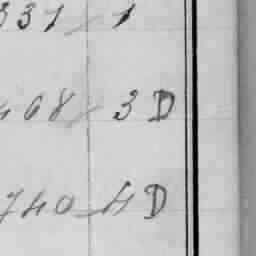 331 / 1
468 / 3 D
740 4 D